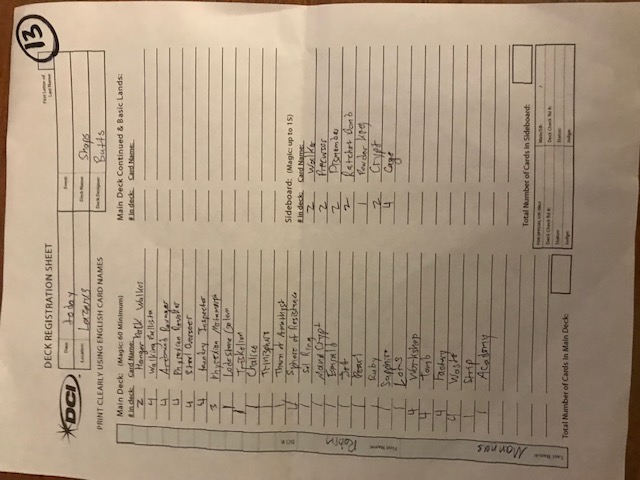 13
DECK REGISTRATION SHEET
First Letter of
Last Name
DCI
Date: today
Event:
Location: Lazarus
Deck Name: Shops
Deck Designer: Butts
PRINT CLEARLY USING ENGLISH CARD NAMES
Main Deck: (Magic: 60 Minimum)
# in deck: Card Name:
2 Hangerback Walker
4 Walking Ballista
4 Arcbound Ravager
4 Phyrexian Revoker
4 Steel Overseer
4 Foundry Inspector
3 Phyrexian Metamorph
1 Lodestone Golem
1 Triskelion
1 Chalice
1 Trinisphere
1 Thorn of Amethyst
4 Sphere of Resistance
1 Sol Ring
1 Mana Crypt
1 Emerald
1 Jet
1 Pearl
1 Ruby
1 Sapphire
1 Lotus
4 Workshop
4 Tomb
4 Factory
4 Waste
1 Strip
1 Academy
Total Number of Cards in Main Deck:
Main Deck Continued & Basic Lands:
# in deck: Card Name:
Sideboard: (Magic: up to 15)
# in deck: Card Name:
2 Walker
2 Precursor
2 Dismember
2 Ratchet Bomb
1 Powder Keg
2 Crypt
4 Cage
Total Number of Cards in Sideboard:
FOR OFFICIAL USE ONLY
Deck Check Rd #:
Status:
Judge:
Main/SB: /
Deck Check Rd #:
Status:
Judge:
DCI #:
First Name: Robin
Last Name: